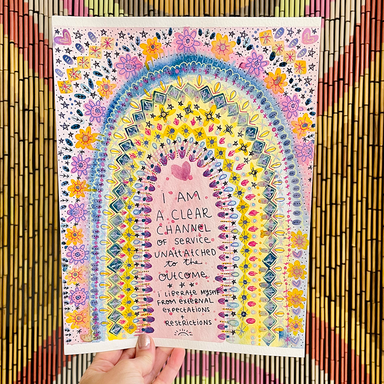 I AM
A CLEAR
CHANNEL
OF SERVICE
UNATTATCHED
to the
OUTCOME
I LIBERATE MYSELF
FROM EXTERNAL
EXPECTATIONS
+
RESTRICTIONS